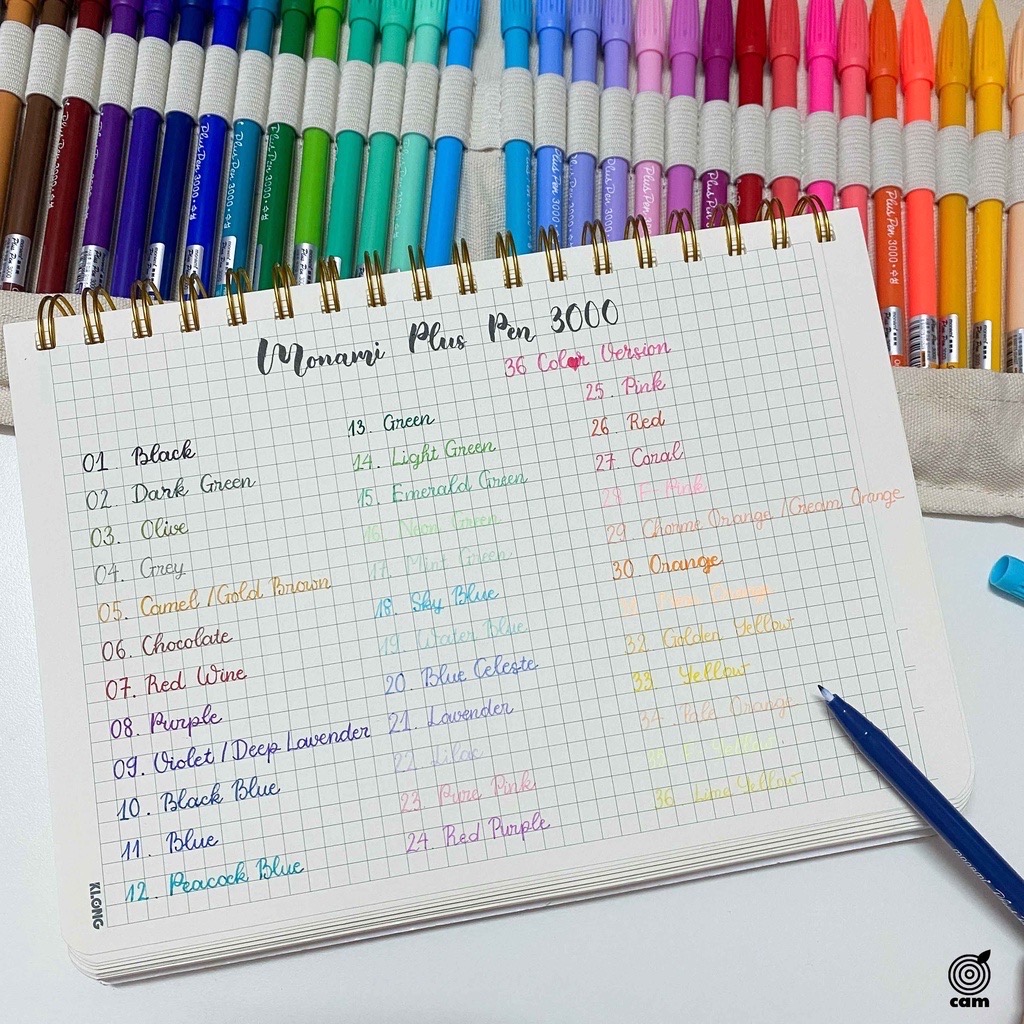 Plus Pen 3000
Monami Plus Pen 3000
36 Color Version
01. Black
02. Dark Green
03. Olive
04. Grey
05. Camel /Gold Brown
06. Chocolate
07. Red Wine
08. Purple
09. Violet / Deep Lavender
10. Black Blue
11. Blue
12. Peacock Blue
13. Green
14. Light Green
15. Emerald Green
16. Neon Green
17. Mint Green
18. Sky Blue
19. Water Blue
20. Blue Celeste
21. Lavender
22. Lilac
23. Pure Pink
24. Red Purple
25. Pink
26 Red
27 Coral
28 F. Pink
29. Chorme Orange /Cream Orange
30 Orange
Orange
32 Golden Yellow
33 Yellow
34 Pale Orange
35 F. Yellow
36 Lime Yellow
KLONG
cam